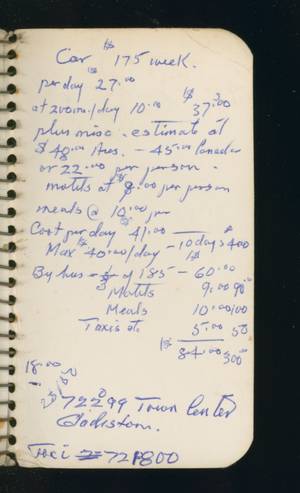 Car $175 week.
per day 27.00
at 200 mi/day 10.00 $37.00
plus misc. estimate at
$48.00 Aus. - 45.00 Canada
or 22.00 per person.
motils at $9.00 per person
meals @ 10.00 per
Cost per day 41.00
Max $40.00/day - 10 days $400
By bus - 1/3 of 185 - 60.00
Motils 9.00 90
Meals 10.00 100
Taxis etc. 5.00 50
$84.00 300
18.00
72299 Town Center
Taxi 721800